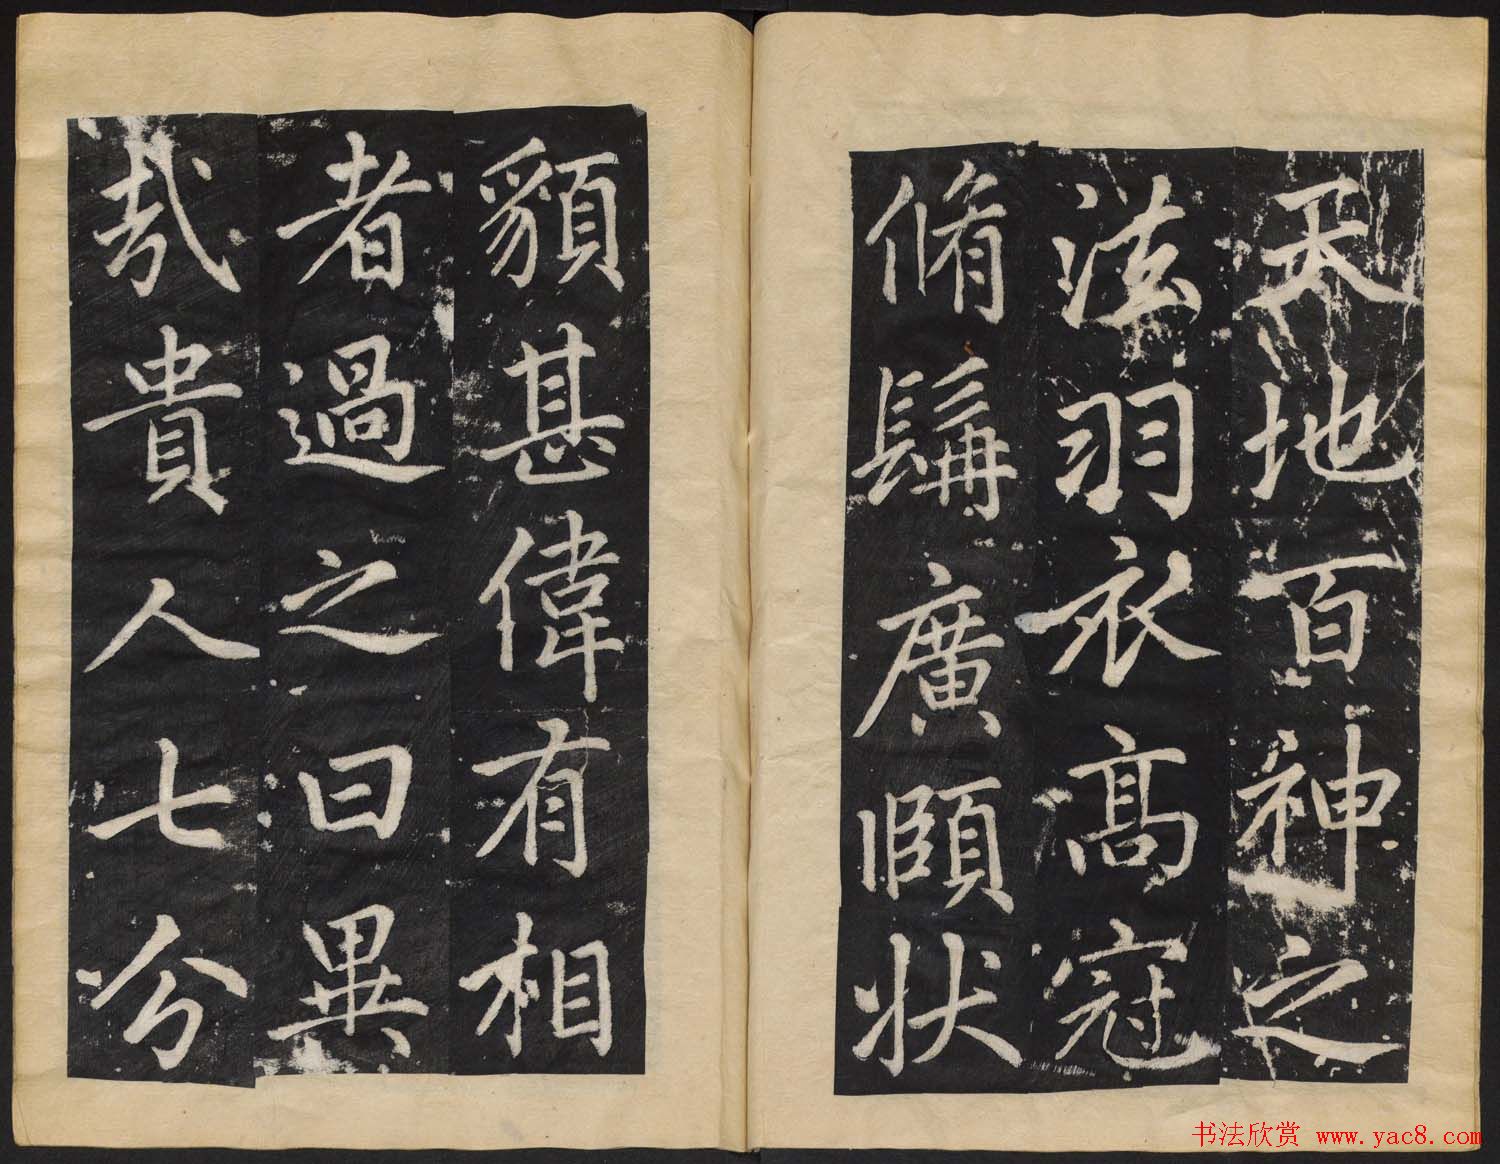 天地百神之
法羽衣高冠
脩鬍廣頤狀
貌甚偉有相
者過之曰異
哉貴人七分
书法欣赏 www.yac8.com